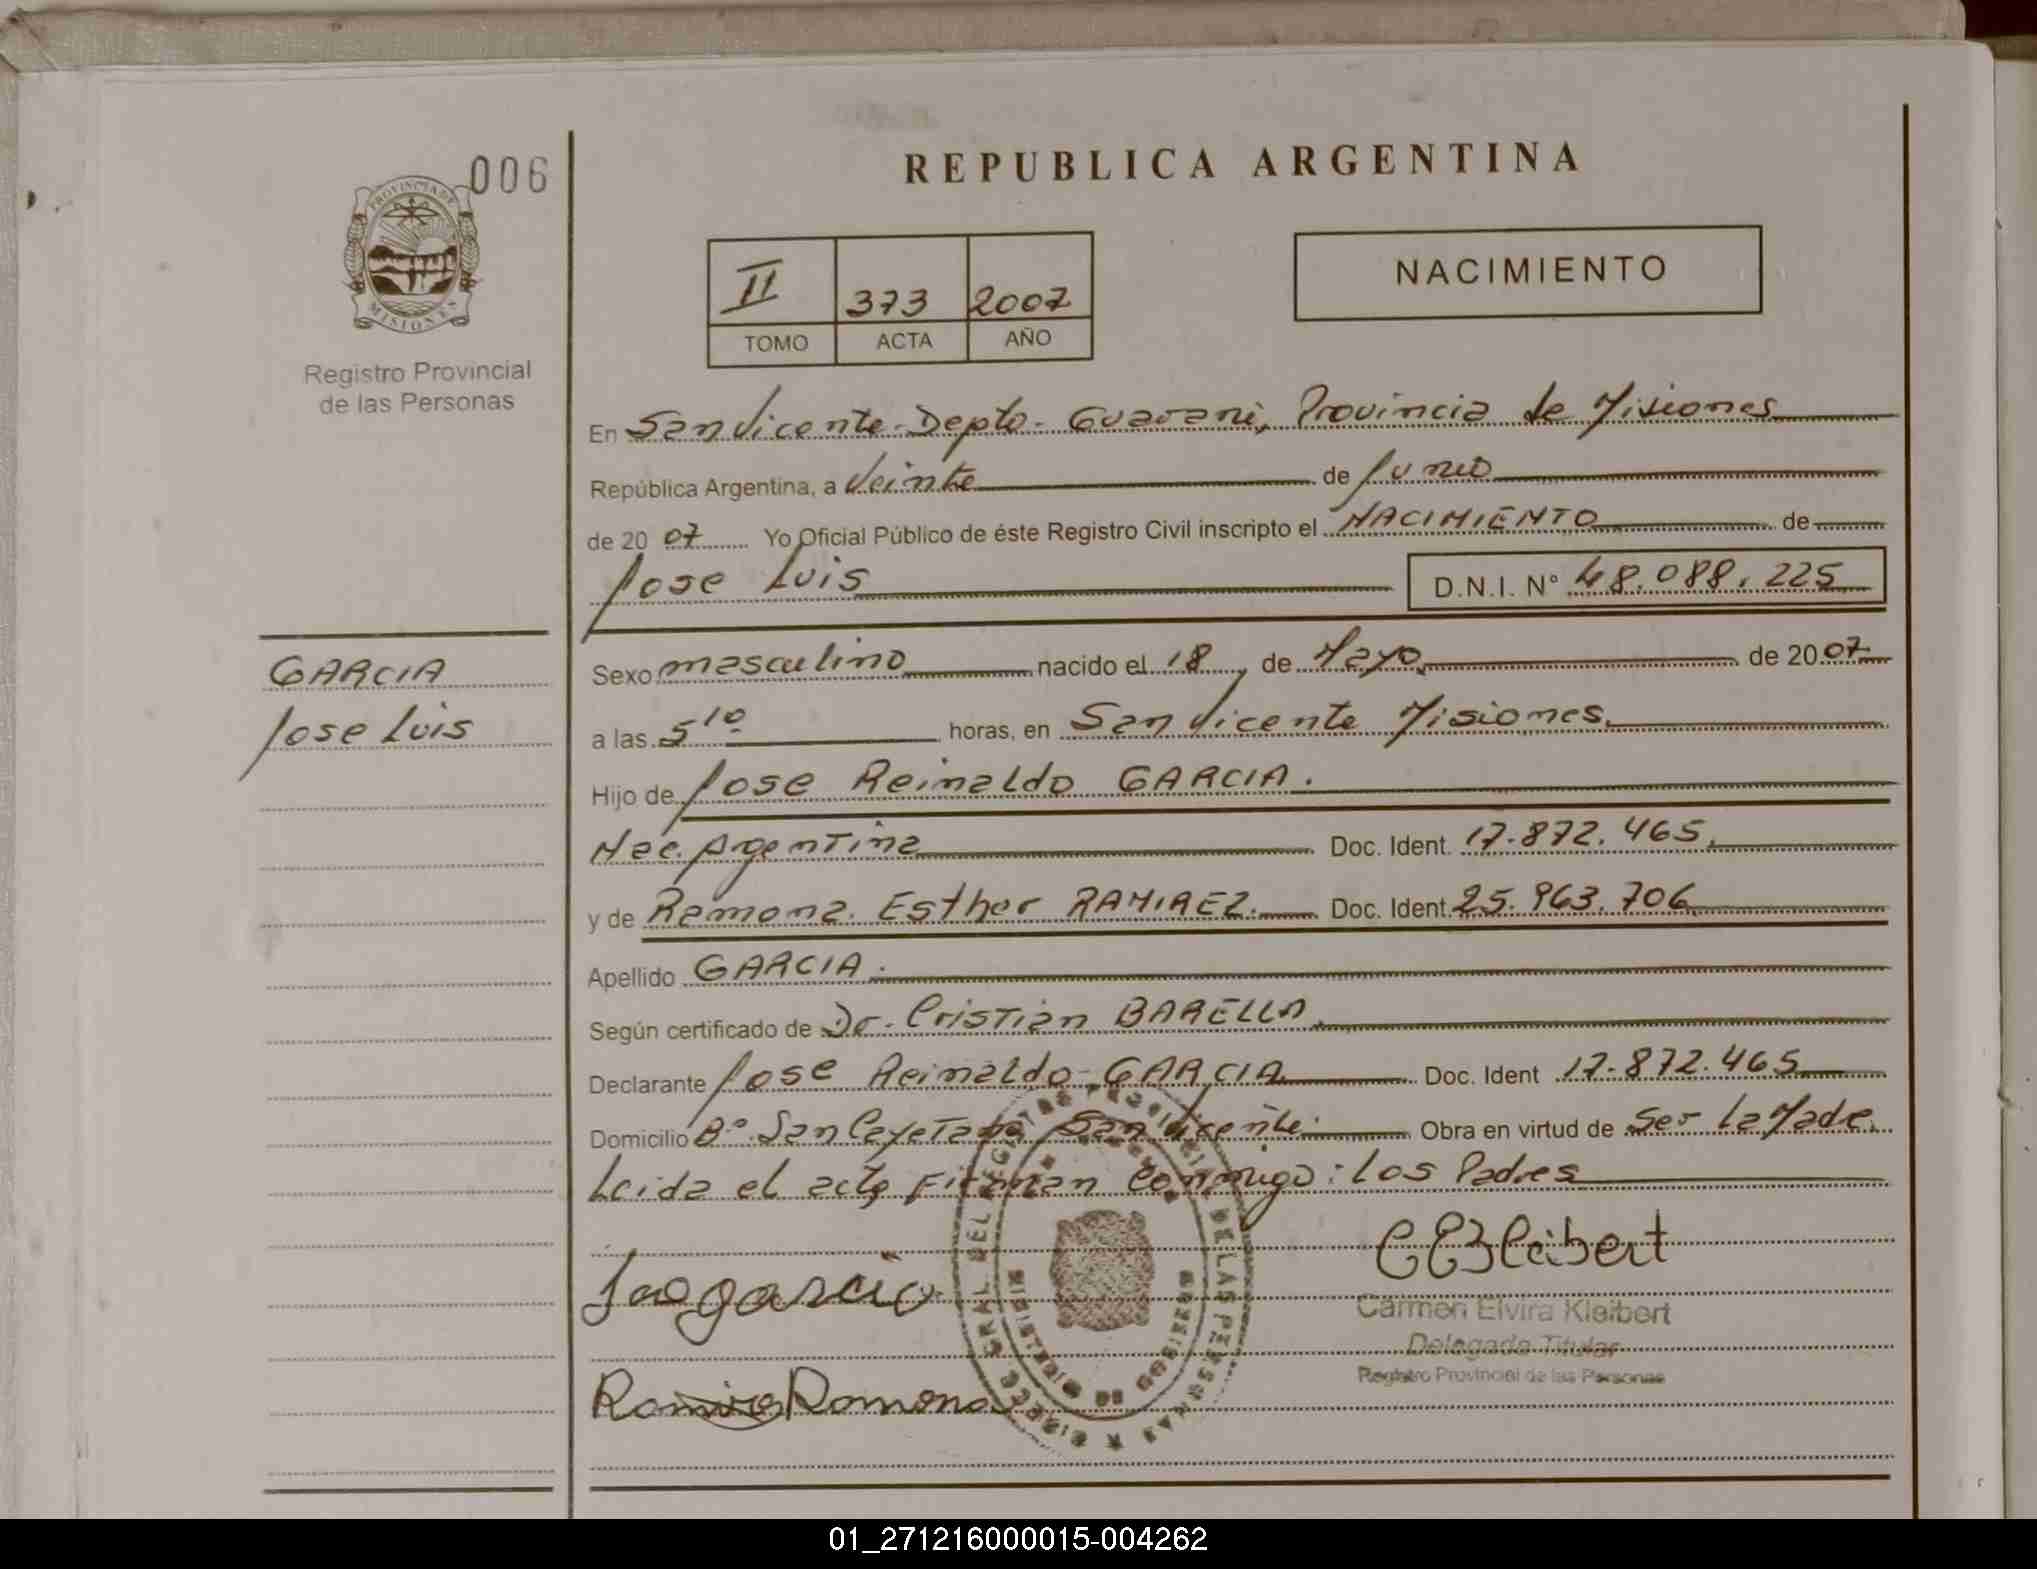 006
PROVINCIA DE
MISIONES
Registro Provincial
de las Personas
GARCIA
Jose Luis
REPUBLICA ARGENTINA
II 373 2007
TOMO ACTA AÑO
NACIMIENTO
En San Vicente - Depto - Guarani, Provincia de Misiones
República Argentina, a Veinte de Junio
de 2007 Yo Oficial Público de éste Registro Civil inscripto el NACIMIENTO de
Jose Luis D.N.I. N° 48.088.225
Sexo masculino nacido el 18, de Mayo de 2007
a las 5 10 horas, en San Vicente Misiones.
Hijo de Jose Reinaldo GARCIA.
Nac. Argentina Doc. Ident. 17.872.465.
y de Ramona Esther RAMIREZ. Doc. Ident. 25.963.706
Apellido GARCIA.
Según certificado de Dr. Cristian BARELLA
Declarante Jose Reinaldo GARCIA Doc. Ident 17.872.465
Domicilio B° San Cayetano San Vicente. Obra en virtud de Ser La Madre.
Leida el acta Firman Conmigo: Los Padres
Jose garcia
CEKleibert
Carmen Elvira Kleibert
Delegada Titular
Registro Provincial de las Personas
Ramires Ramona
01_271216000015-004262